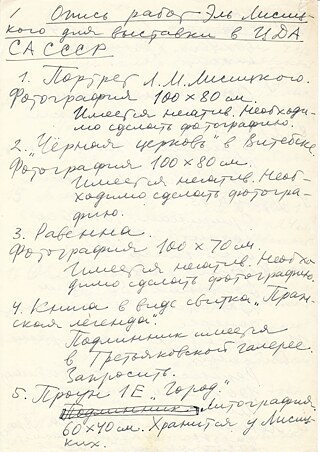 1 Опись работ Эль Лисиц-
кого для выставки в ЦДА
СА СССР
1. Портрет Л. М. Лисицкого.
Фотография 100 x 80 см.
Имеется негатив. Необходи-
мо сделать фотографию.
2. „Чёрная церковь" в Витебске
Фотография 100 x 80 см.
Имеется негатив. Необ-
ходимо сделать фотогра-
фию.
3. Равенна.
Фотография 100 x 70 см.
Имеется негатив. Необхо-
димо сделать фотографию.
4. Книга в виде свитка „Праж-
ская легенда".
Подлинник имеется
в Третьяковской галерее.
Запросить.
5. Проун 1Е „Город."
Подлинник Литография.
60 x 40 см. Хранится у Лисиц-
ких.